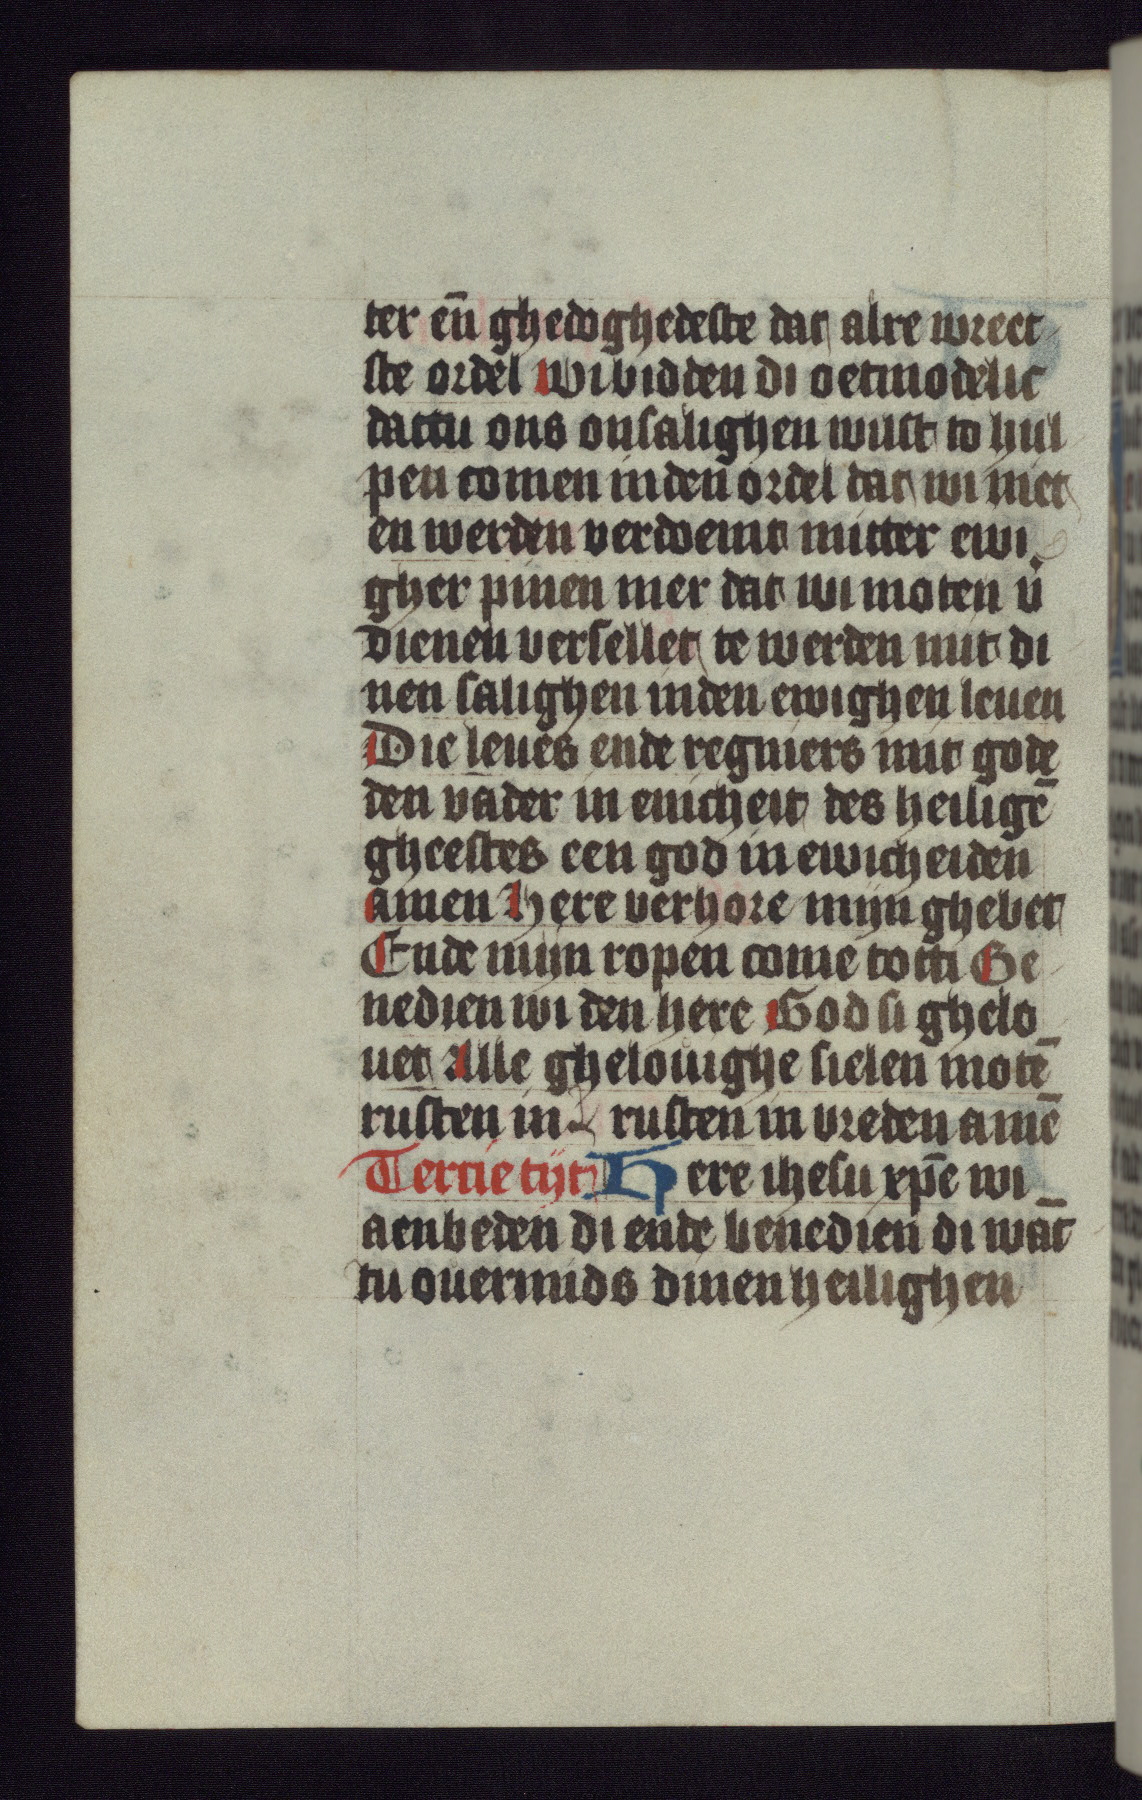 ter en̄ ghedoghedeste dat alre wrect
ste ordel Wi bidden di oetmodelic
dattu ons onsalighen wilst to hul
pen comen inden ordel dat wi niet
en werden verdoemt mitter ewi
gher pinen mer dat wi moten v̄
dienen versellet te werden mit di
nen salighen inden ewighen leuen
Die leues ende regniers mit gode
den vader in enicheit des heiligē
gheestes een god in ewicheiden
amen Here verhore mijn ghebet
Ende mijn ropen come totti Ge
nedien wi den here God si ghelo
uet Alle ghelouighe sielen motē
rusten in rusten in vreden amē
Tercie tijt Here ihesu xp̄e wi
aenbeden di ende benedien di want
tu ouermids dinen heilighen